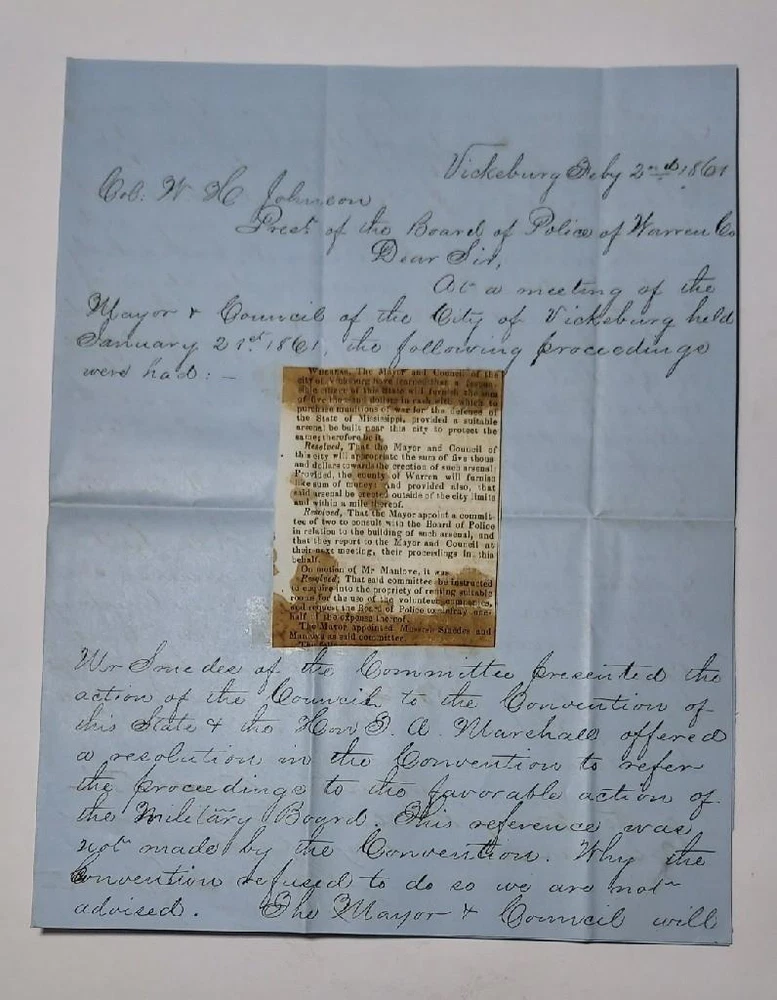 Vicksburg Feby 2nd 1861
Col: W. H. Johnson
Prest of the Board of Police of Warren Co
Dear Sir,
At a meeting of the
Mayor & Council of the City of Vicksburg held
January 21st 1861, the following proceedings
were had: —
WHEREAS, The Mayor and Council of the
city of Vicksburg have learned that a
citizen of this State will furnish the sum
of five thousand dollars in cash with which to
purchase munitions of war for the defense of
the State of Mississippi, provided a suitable
arsenal be built near this city to protect the
same; therefore be it,
Resolved, That the Mayor and Council of
this city will appropriate the sum of five thous-
and dollars towards the erection of such arsenal:
Provided, the county of Warren will furnish
like sum of money; and provided also, that
said arsenal be erected outside of the city limits
and within a mile thereof.
Resolved, That the Mayor appoint a commit-
tee of two to consult with the Board of Police
in relation to the building of such arsenal, and
that they report to the Mayor and Council at
their next meeting, their proceedings in this
behalf.
On motion of Mr Manlove, it was
Resolved, That said committee be instructed
to enquire into the propriety of renting suitable
rooms for the use of the volunteer companies,
and request the Board of Police to defray one-
half the expense thereof.
The Mayor appointed Messrs Smedes and
Manlove as said committee.
Mr Smedes of the Committee presented the
action of the Council to the Convention of
this State & the Hon T. A. Marshall offered
a resolution in the Convention to refer
the proceedings to the favorable action of
the Military Board. This reference was
not made by the Convention. Why the
Convention refused to do so we are not
advised. The Mayor & Council will